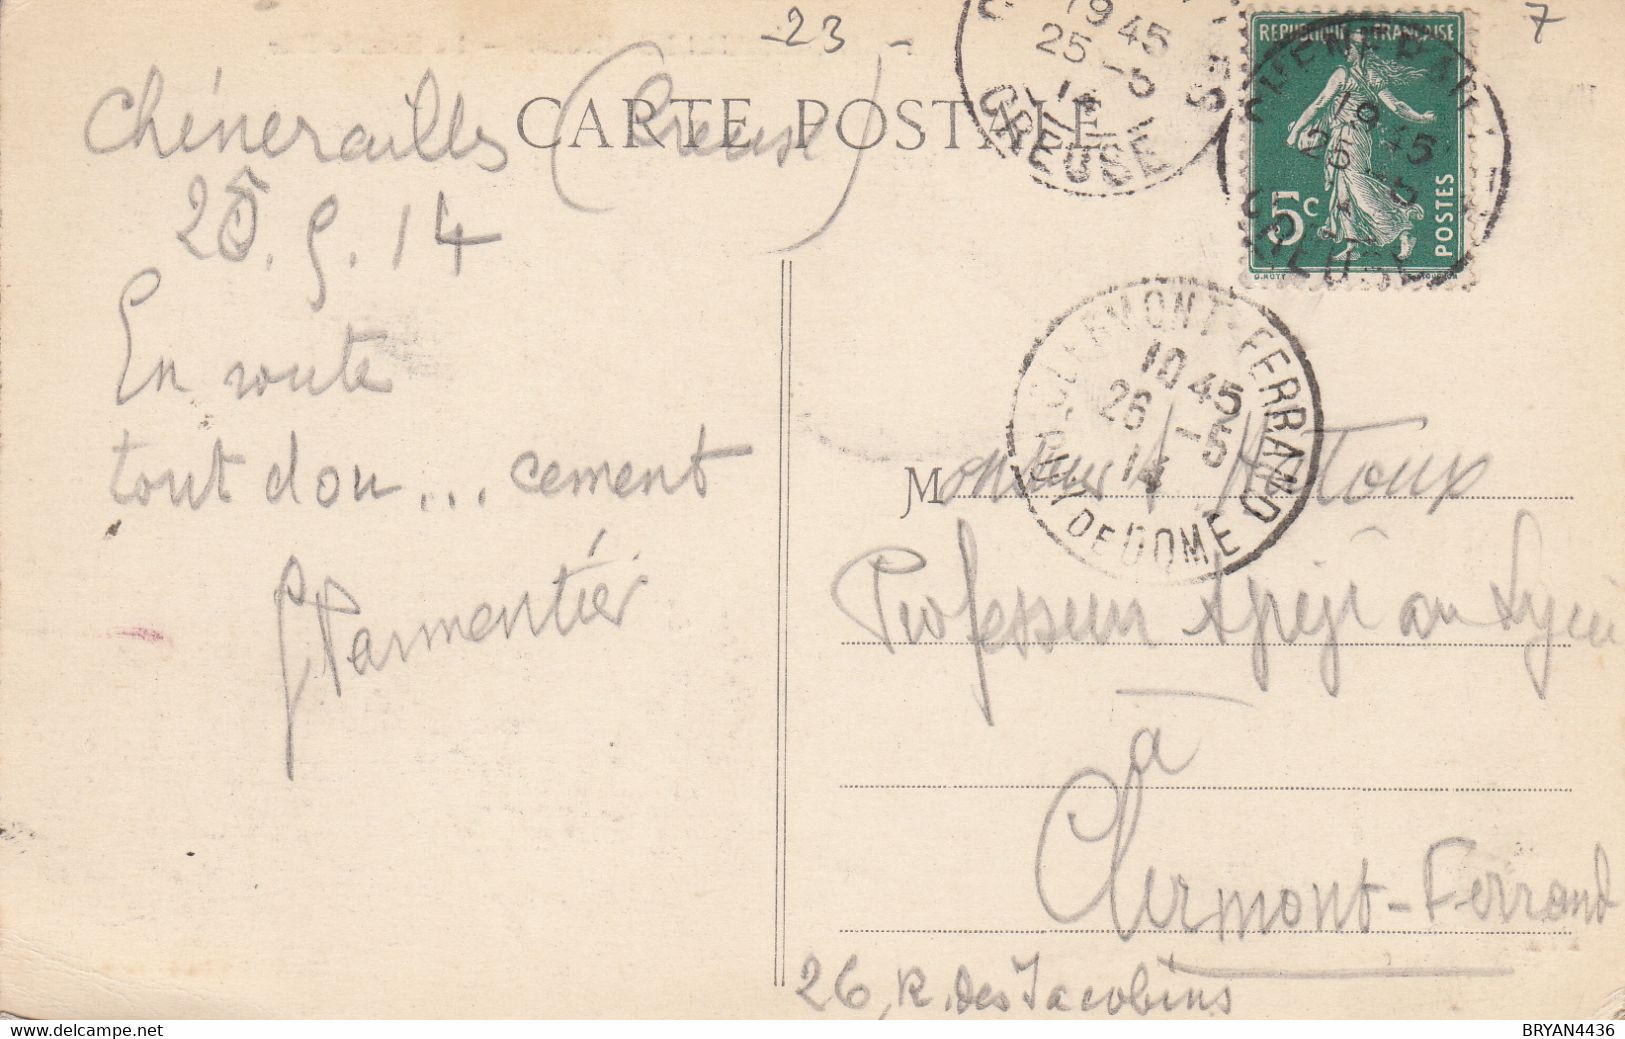 -23-
7
CARTE POSTALE
Chénerailles (Creuse)
25.5.14
En route
tout dou... cement
G Parmentier
19 45
25 -5
14
CREUSE
REPUBLIQUE FRANÇAISE
5c
POSTES
CHENERAILLES
19 45
25 -5
CREUSE
CLERMONT-FERRAND
10 45
26 -5
14
PUY DE DOME
Monsieur
Professeur Agrégé au Lycée
à
Clermont-Ferrand
26, R. des Jacobins
BRYAN4436
www.delcampe.net